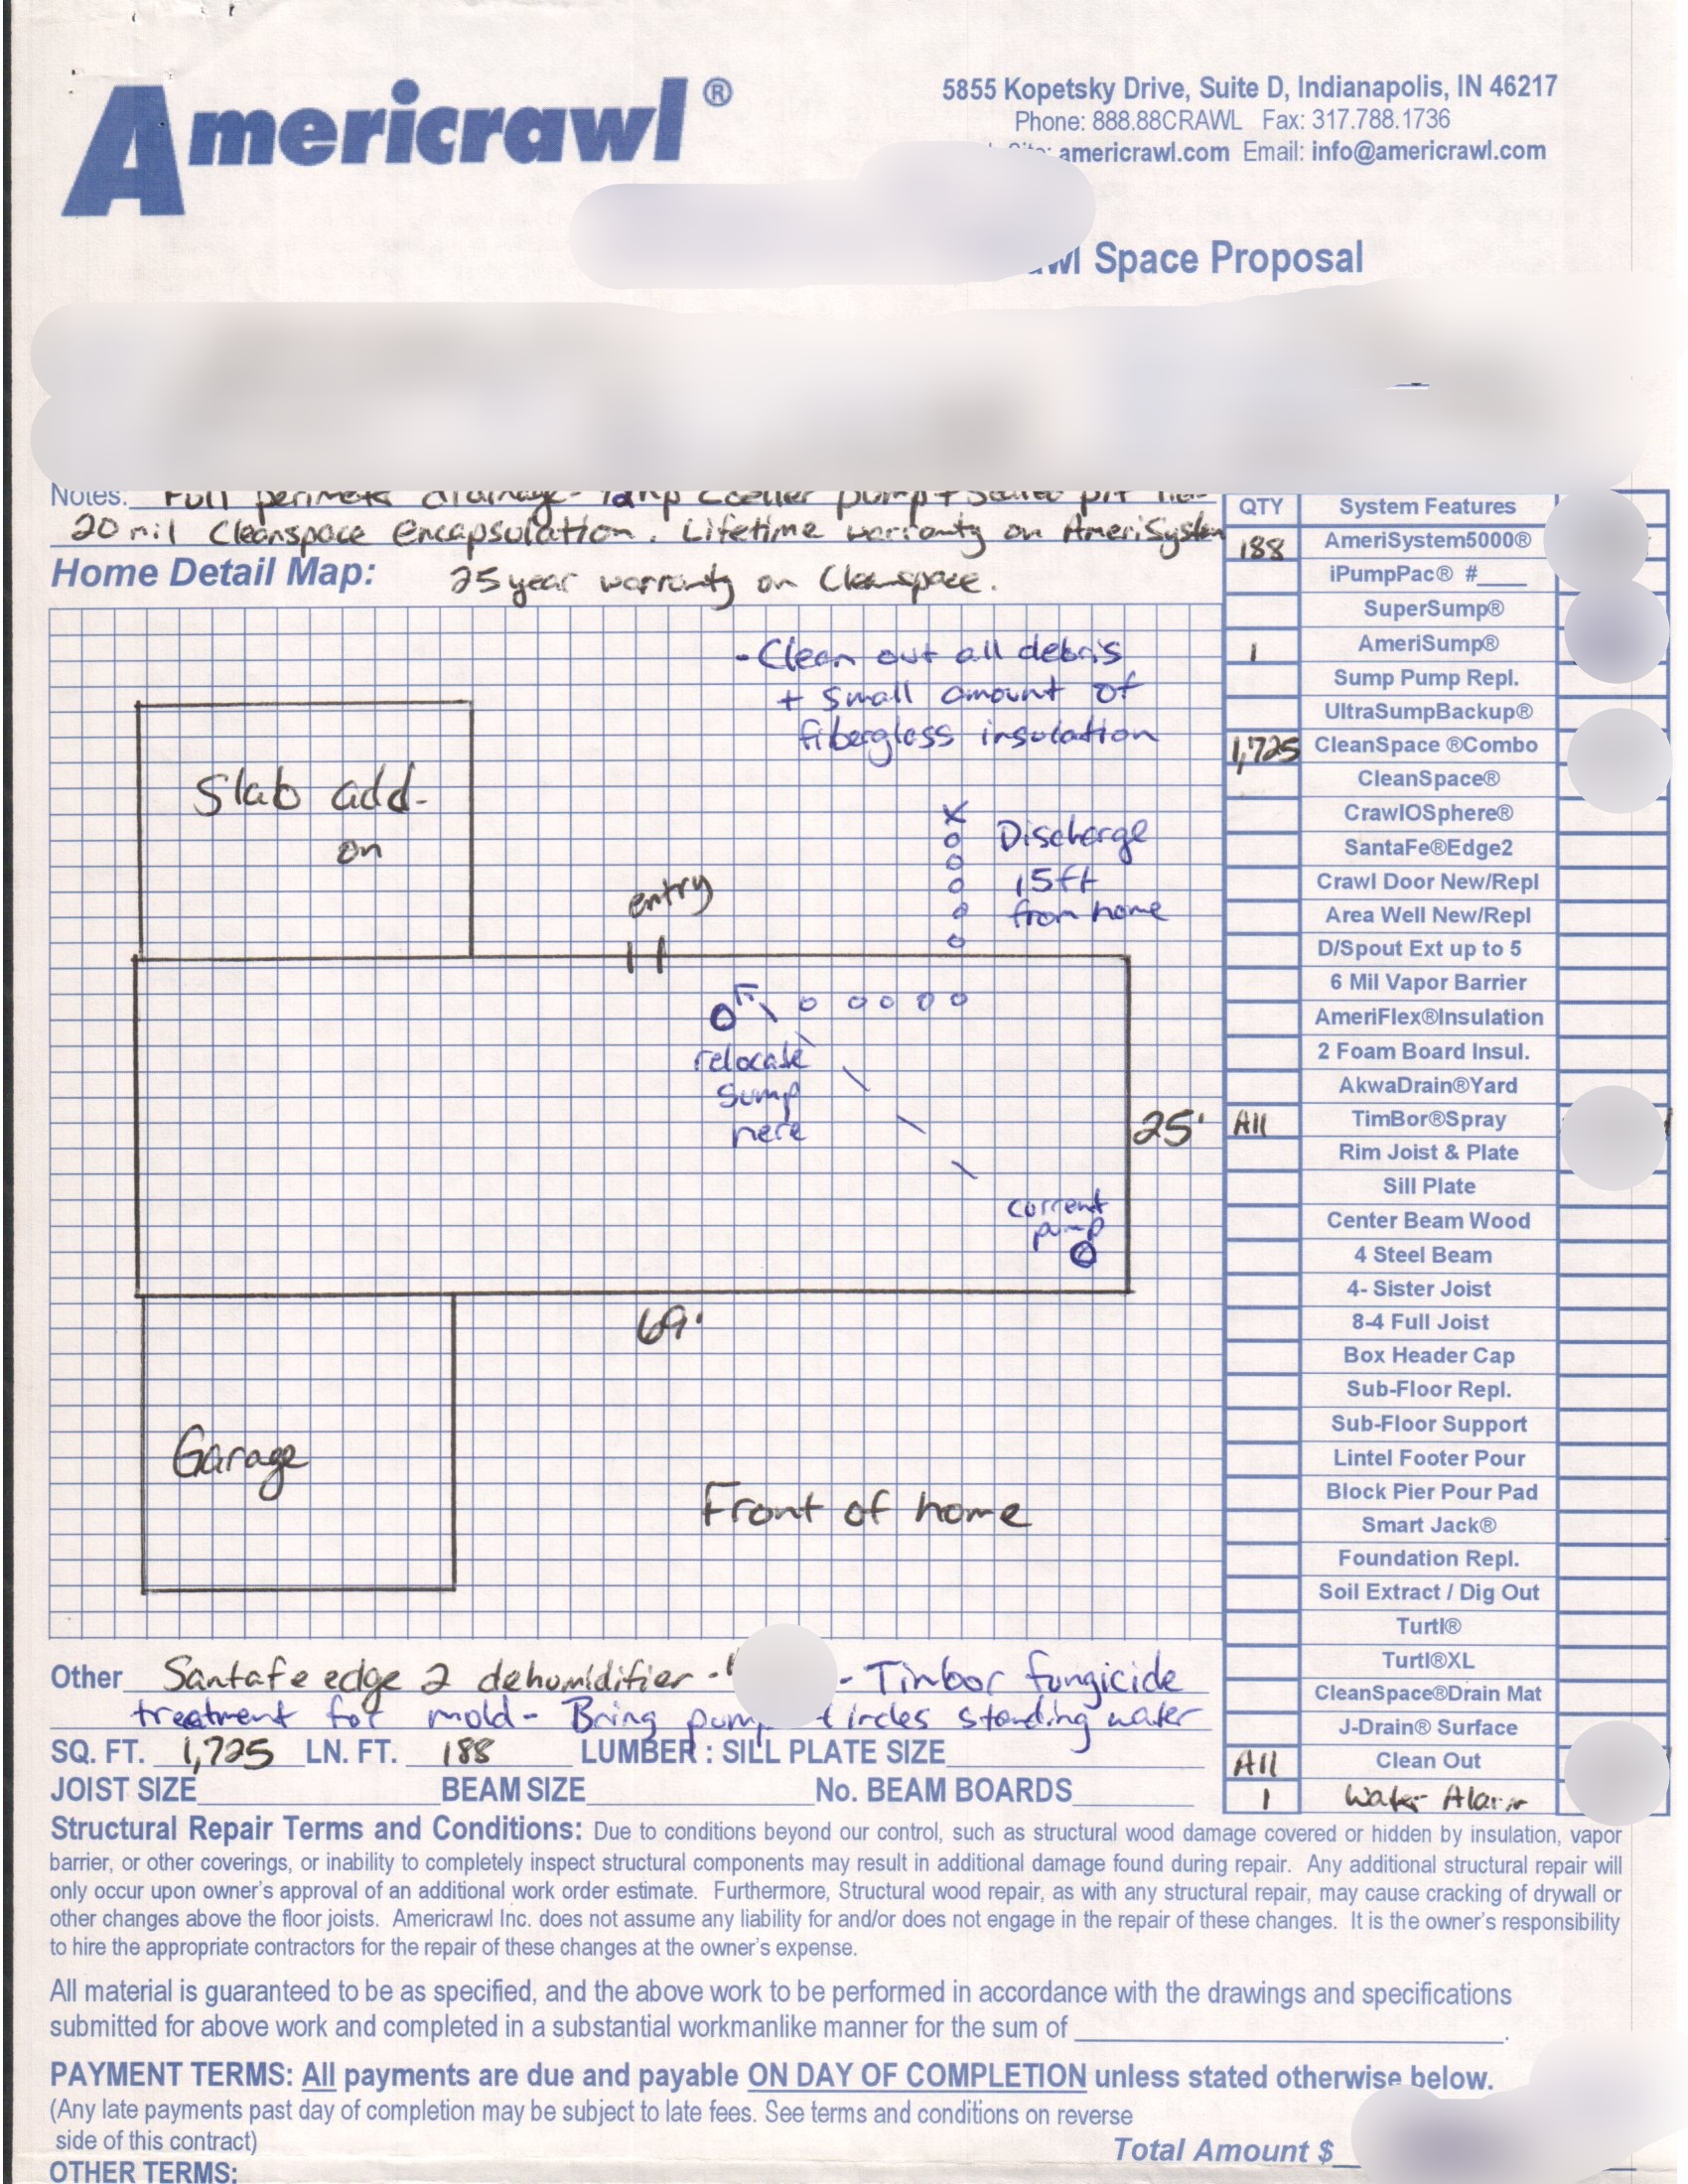 Americrawl®
5855 Kopetsky Drive, Suite D, Indianapolis, IN 46217
Phone: 888.88CRAWL Fax: 317.788.1736
americrawl.com Email: info@americrawl.com
Space Proposal
Notes: Full perimeter drainage- pump + sealed pit
20 mil Cleanspace Encapsulation. Lifetime warranty on AmeriSystem
Home Detail Map: 25 year warranty on Cleanspace.
- Clean out all debris
+ small amount of
fiberglass insulation
Slab add-
on
Discharge
15ft
from home
entry
relocate
sump
here
25'
current
pump
69'
Garage
Front of home
QTY System Features
188 AmeriSystem5000®
iPumpPac® #____
SuperSump®
1 AmeriSump®
Sump Pump Repl.
UltraSumpBackup®
1,725 CleanSpace ®Combo
CleanSpace®
CrawlOSphere®
SantaFe®Edge2
Crawl Door New/Repl
Area Well New/Repl
D/Spout Ext up to 5
6 Mil Vapor Barrier
AmeriFlex®Insulation
2 Foam Board Insul.
AkwaDrain®Yard
All TimBor®Spray
Rim Joist & Plate
Sill Plate
Center Beam Wood
4 Steel Beam
4- Sister Joist
8-4 Full Joist
Box Header Cap
Sub-Floor Repl.
Sub-Floor Support
Lintel Footer Pour
Block Pier Pour Pad
Smart Jack®
Foundation Repl.
Soil Extract / Dig Out
Turtl®
Turtl®XL
CleanSpace®Drain Mat
J-Drain® Surface
All Clean Out
1 Water Alarm
Other Santafe edge 2 dehumidifier - - Timbor fungicide
treatment for mold- Bring pump circles standing water
SQ. FT. 1,725 LN. FT. 188 LUMBER : SILL PLATE SIZE
JOIST SIZE BEAM SIZE No. BEAM BOARDS
Structural Repair Terms and Conditions: Due to conditions beyond our control, such as structural wood damage covered or hidden by insulation, vapor
barrier, or other coverings, or inability to completely inspect structural components may result in additional damage found during repair. Any additional structural repair will
only occur upon owner's approval of an additional work order estimate. Furthermore, Structural wood repair, as with any structural repair, may cause cracking of drywall or
other changes above the floor joists. Americrawl Inc. does not assume any liability for and/or does not engage in the repair of these changes. It is the owner's responsibility
to hire the appropriate contractors for the repair of these changes at the owner's expense.
All material is guaranteed to be as specified, and the above work to be performed in accordance with the drawings and specifications
submitted for above work and completed in a substantial workmanlike manner for the sum of .
PAYMENT TERMS: All payments are due and payable ON DAY OF COMPLETION unless stated otherwise below.
(Any late payments past day of completion may be subject to late fees. See terms and conditions on reverse
side of this contract)
Total Amount $
OTHER TERMS: